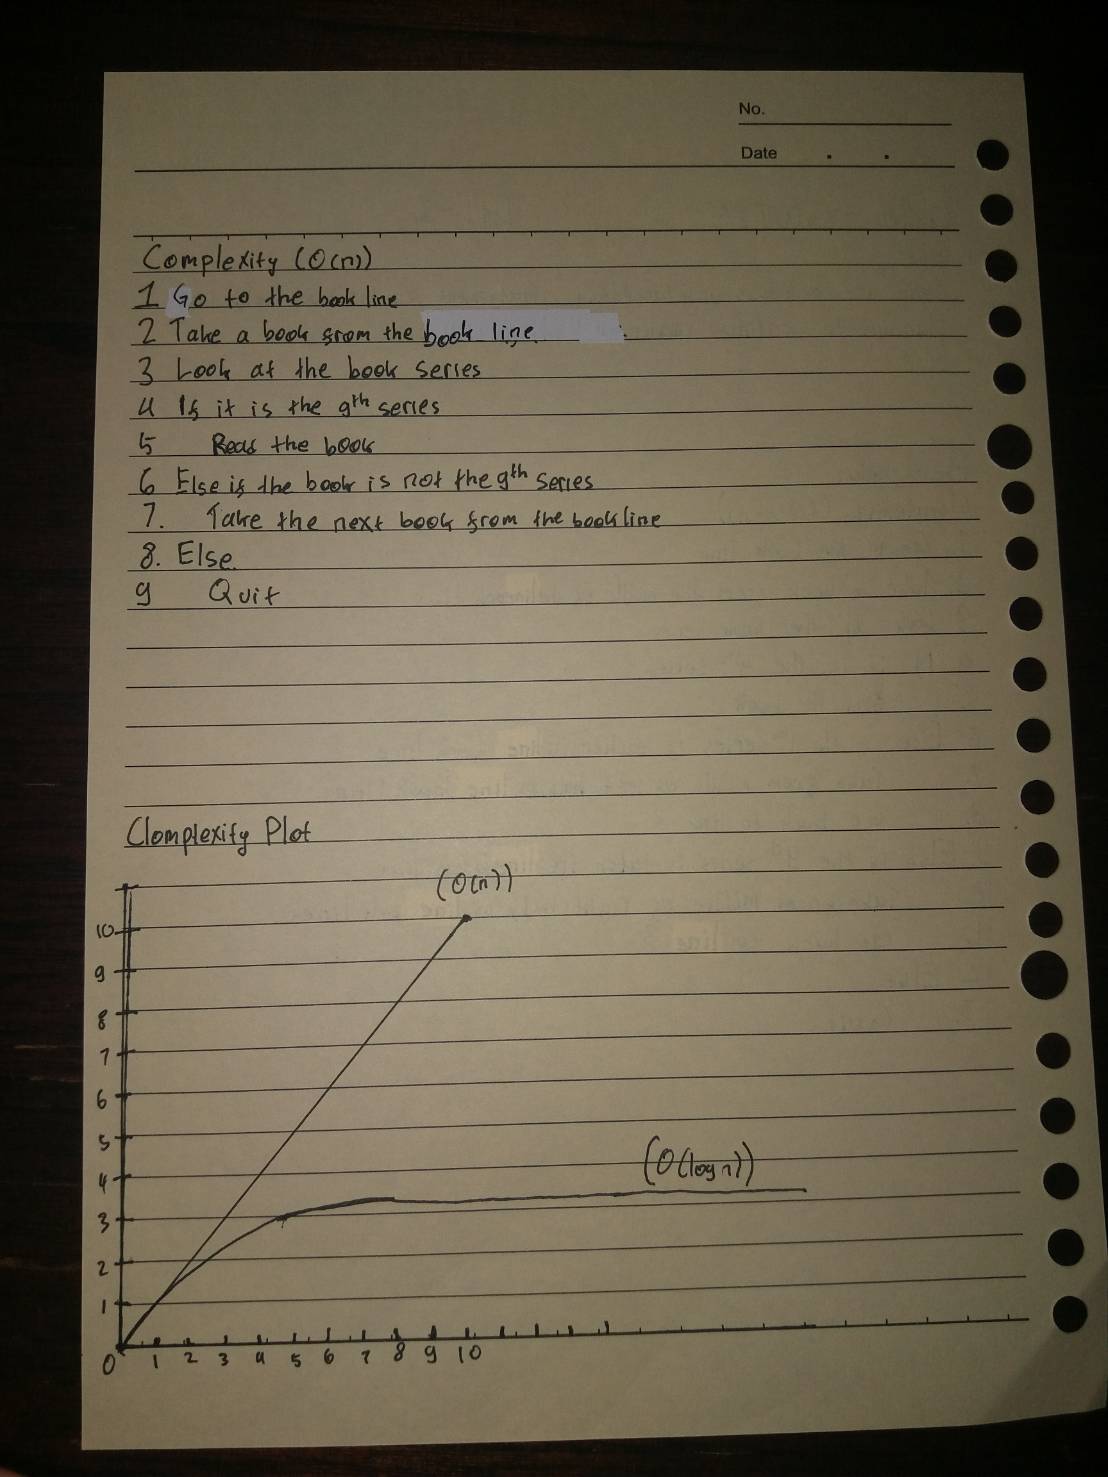 No.
Date . .
Complexity (O(n))
1 Go to the book line
2 Take a book from the book line
3 Look at the book series
4 If it is the 9th series
5 Read the book
6 Else if the book is not the 9th series
7. Take the next book from the book line
8. Else
9 Quit
Clomplexity Plot
(O(n))
10
9
8
7
6
5
4
(O(log n))
3
2
1
0 1 2 3 4 5 6 7 8 9 10